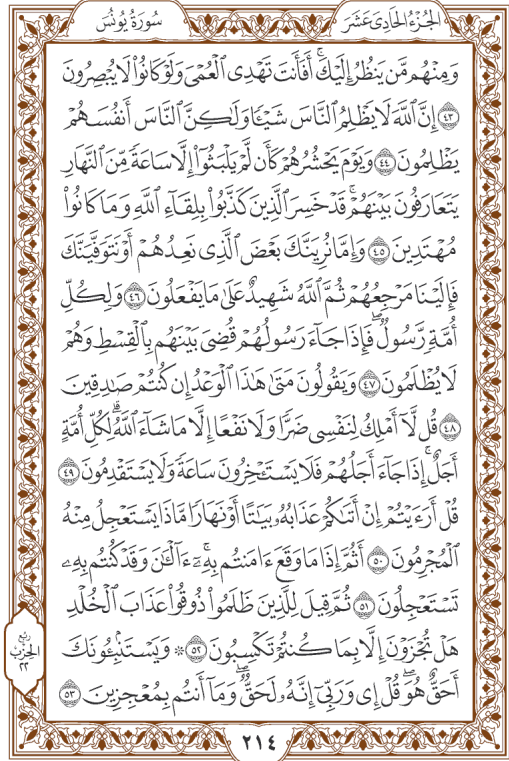 الجُزْءُ الحَادِي عَشَرَ
سُورَةُ يُونُسَ
وَمِنْهُم مَّن يَنظُرُ إِلَيْكَۚ أَفَأَنتَ تَهْدِي ٱلْعُمْىَ وَلَوْ كَانُوا۟ لَا يُبْصِرُونَ
٤٣ إِنَّ ٱللَّهَ لَا يَظْلِمُ ٱلنَّاسَ شَيْـًٔا وَلَـٰكِنَّ ٱلنَّاسَ أَنفُسَهُمْ
يَظْلِمُونَ ٤٤ وَيَوْمَ يَحْشُرُهُمْ كَأَن لَّمْ يَلْبَثُوٓا۟ إِلَّا سَاعَةً مِّنَ ٱلنَّهَارِ
يَتَعَارَفُونَ بَيْنَهُمْۚ قَدْ خَسِرَ ٱلَّذِينَ كَذَّبُوا۟ بِلِقَآءِ ٱللَّهِ وَمَا كَانُوا۟
مُهْتَدِينَ ٤٥ وَإِمَّا نُرِيَنَّكَ بَعْضَ ٱلَّذِى نَعِدُهُمْ أَوْ نَتَوَفَّيَنَّكَ
فَإِلَيْنَا مَرْجِعُهُمْ ثُمَّ ٱللَّهُ شَهِيدٌ عَلَىٰ مَا يَفْعَلُونَ ٤٦ وَلِكُلِّ
أُمَّةٍ رَّسُولٌۖ فَإِذَا جَآءَ رَسُولُهُمْ قُضِىَ بَيْنَهُم بِٱلْقِسْطِ وَهُمْ
لَا يُظْلَمُونَ ٤٧ وَيَقُولُونَ مَتَىٰ هَـٰذَا ٱلْوَعْدُ إِن كُنتُمْ صَـٰدِقِينَ
٤٨ قُل لَّآ أَمْلِكُ لِنَفْسِى ضَرًّا وَلَا نَفْعًا إِلَّا مَا شَآءَ ٱللَّهُۗ لِكُلِّ أُمَّةٍ
أَجَلٌۚ إِذَا جَآءَ أَجَلُهُمْ فَلَا يَسْتَـْٔخِرُونَ سَاعَةً وَلَا يَسْتَقْدِمُونَ ٤٩
قُلْ أَرَءَيْتُمْ إِنْ أَتَىٰكُمْ عَذَابُهُۥ بَيَـٰتًا أَوْ نَهَارًا مَّاذَا يَسْتَعْجِلُ مِنْهُ
ٱلْمُجْرِمُونَ ٥٠ أَثُمَّ إِذَا مَا وَقَعَ ءَامَنتُم بِهِۦٓۚ ءَآلْـَٔـٰنَ وَقَدْ كُنتُم بِهِۦ
تَسْتَعْجِلُونَ ٥١ ثُمَّ قِيلَ لِلَّذِينَ ظَلَمُوا۟ ذُوقُوا۟ عَذَابَ ٱلْخُلْدِ
هَلْ تُجْزَوْنَ إِلَّا بِمَا كُنتُمْ تَكْسِبُونَ ٥٢ ۞ وَيَسْتَنۢبِـُٔونَكَ
أَحَقٌّ هُوَۖ قُلْ إِى وَرَبِّىٓ إِنَّهُۥ لَحَقٌّۖ وَمَآ أَنتُم بِمُعْجِزِينَ ٥٣
رُبْع
الحِزْب
٢٢
٢١٤